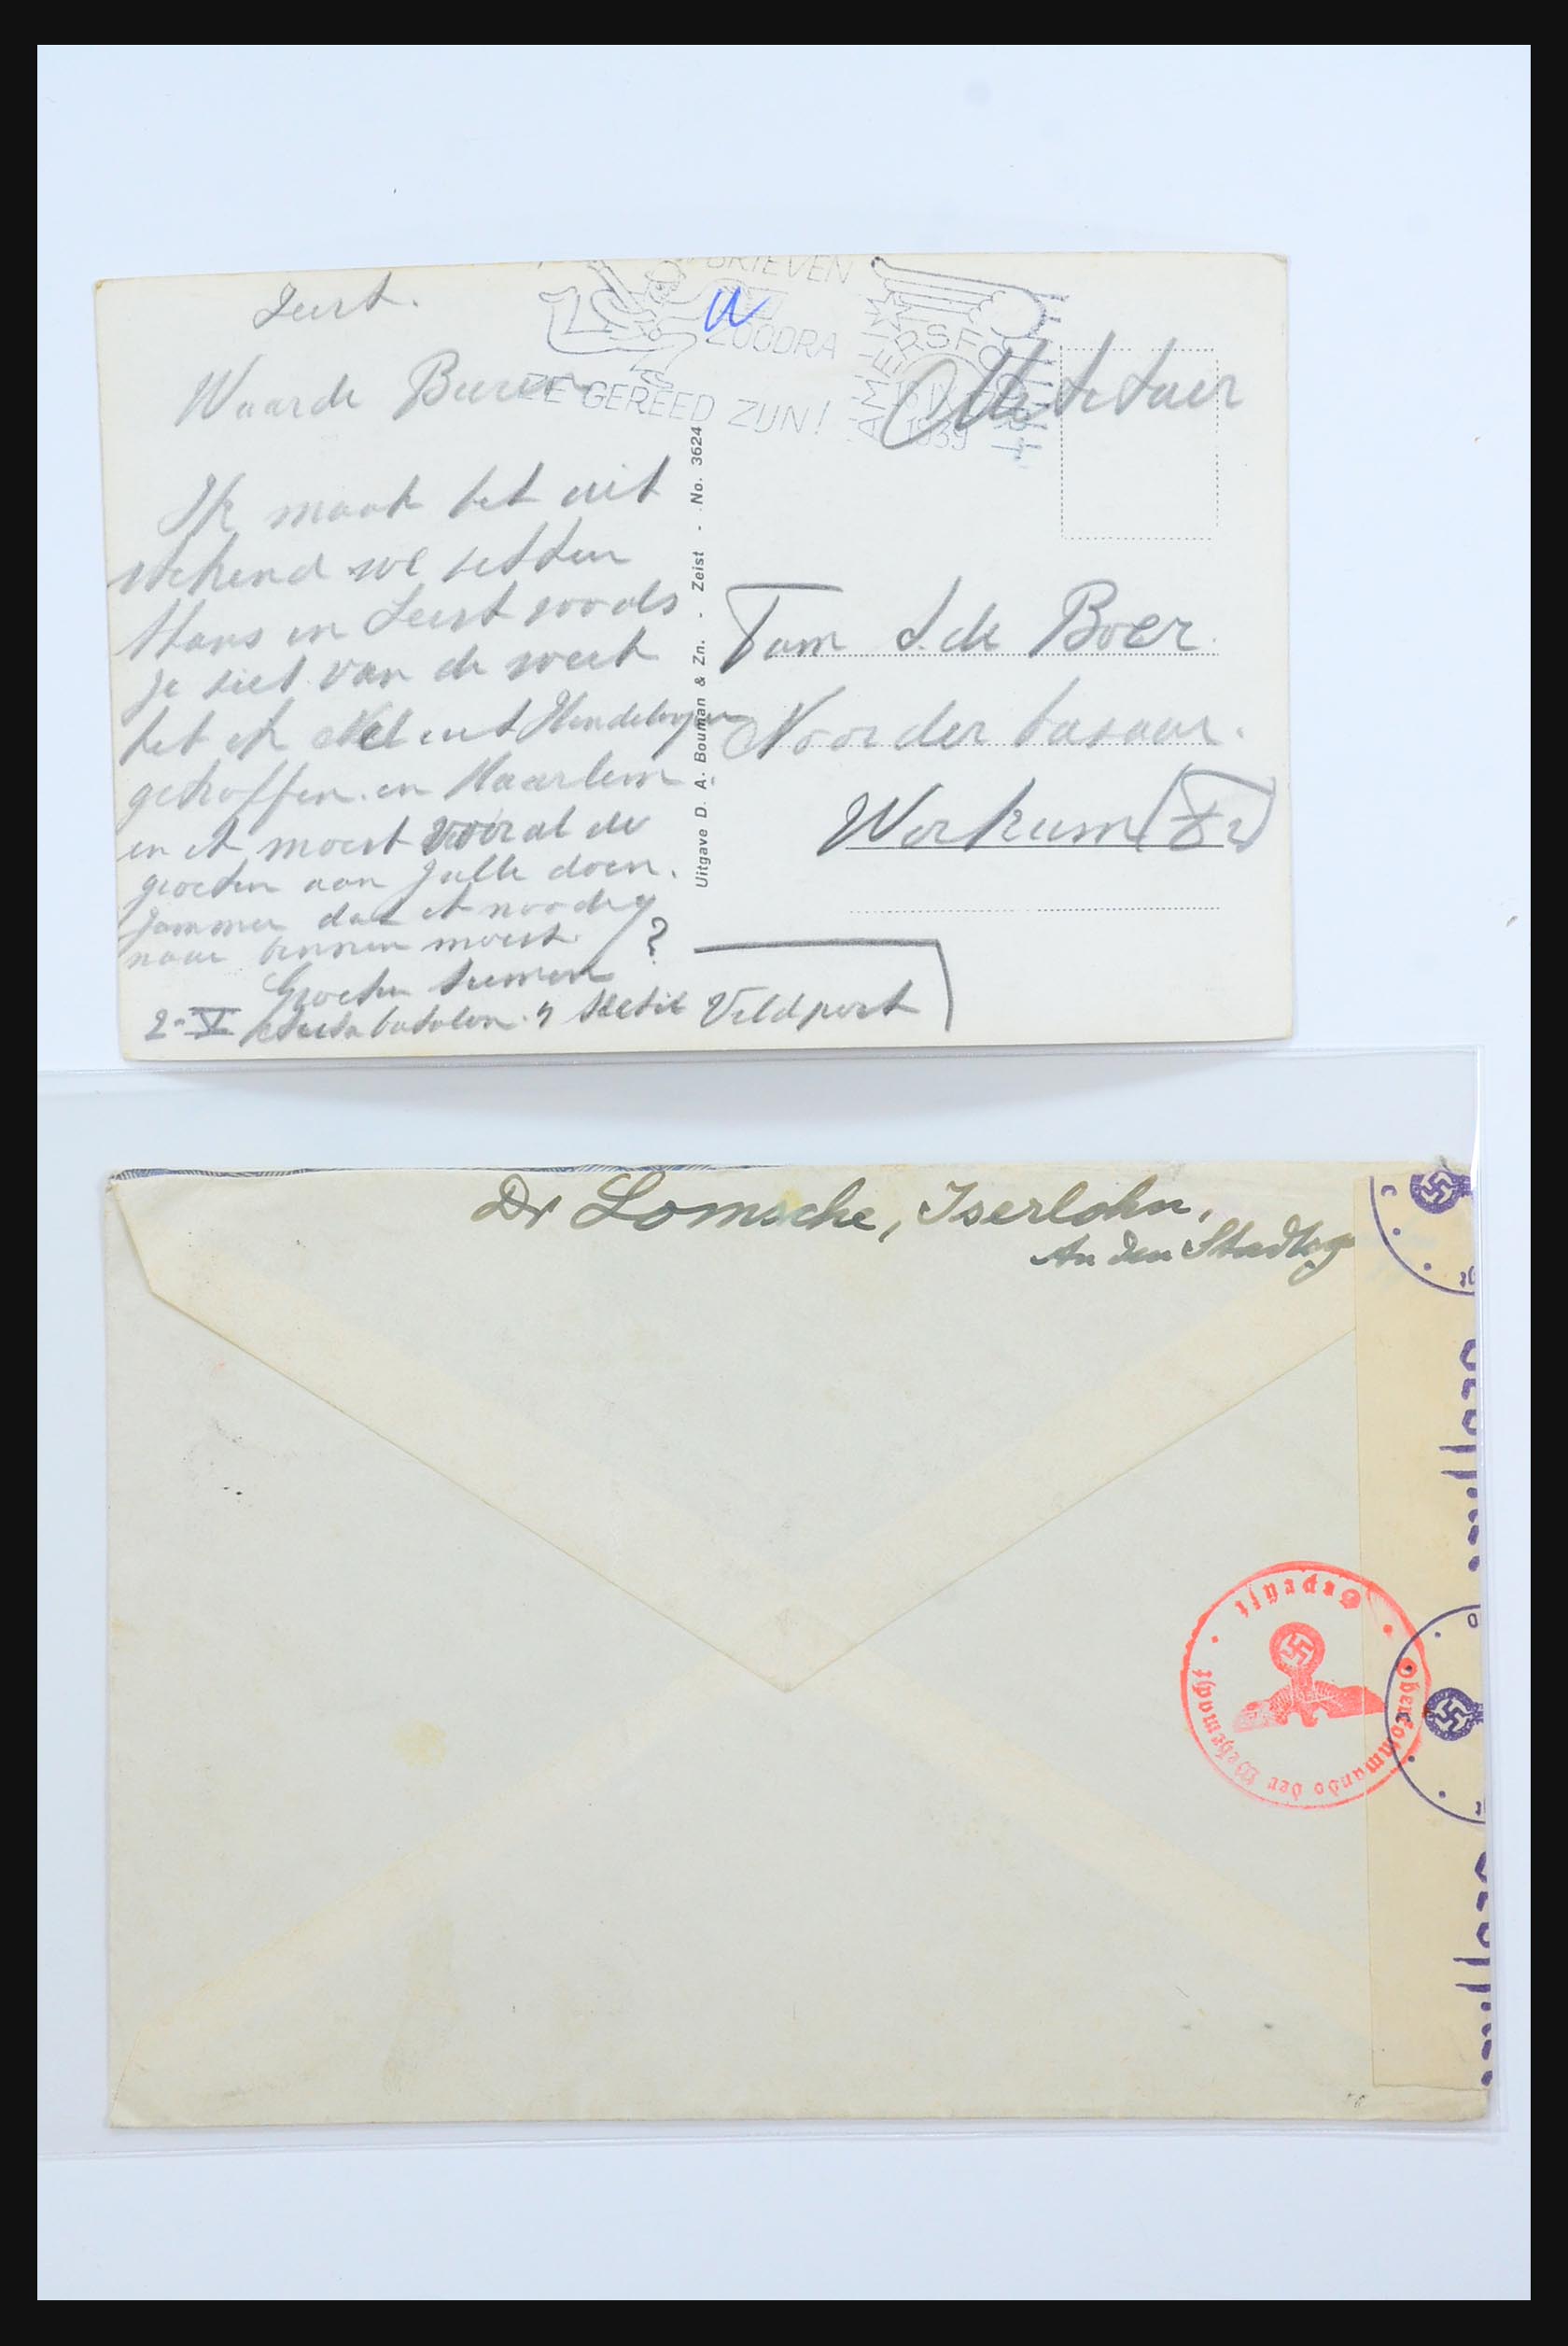 Zeist.
Waarde Buren
BRIEVEN
ZOODRA
ZE GEREED ZIJN!
AMERSFOORT
1939
Militair
Ik maak het uit
stekend we zitten
thans in Zeist zooals
je ziet van de week
heb ik Nel uit Hindeloopen
getroffen in Haarlem
en ik moest vooral de
groeten aan jullie doen.
Jammer dat ik noodig
naar binnen moest. ?
Groeten
2-V 4 Sectie Veldpost
Uitgave D. A. Bouman & Zn. - Zeist - No. 3624
Fam S. de Boer.
Noorder bazaar.
Workum (Fr)
Dr Lomsche, Iserlohn,
An den Stadtg
Geprüft
Oberkommando der Wehrmacht